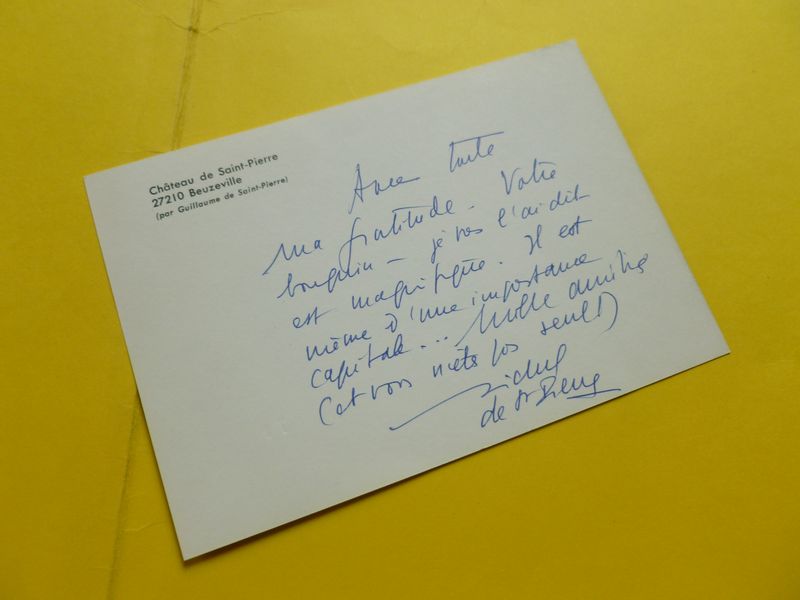 Château de Saint-Pierre
27210 Beuzeville
(par Guillaume de Saint-Pierre)
Avec toute
ma gratitude - Votre
bouquin - je vous l'ai dit
est magnifique. Il est
même d'une importance
capitale... Mille amitiés
(et vous n'êtes pas seul!)
Michel
de St Pierre